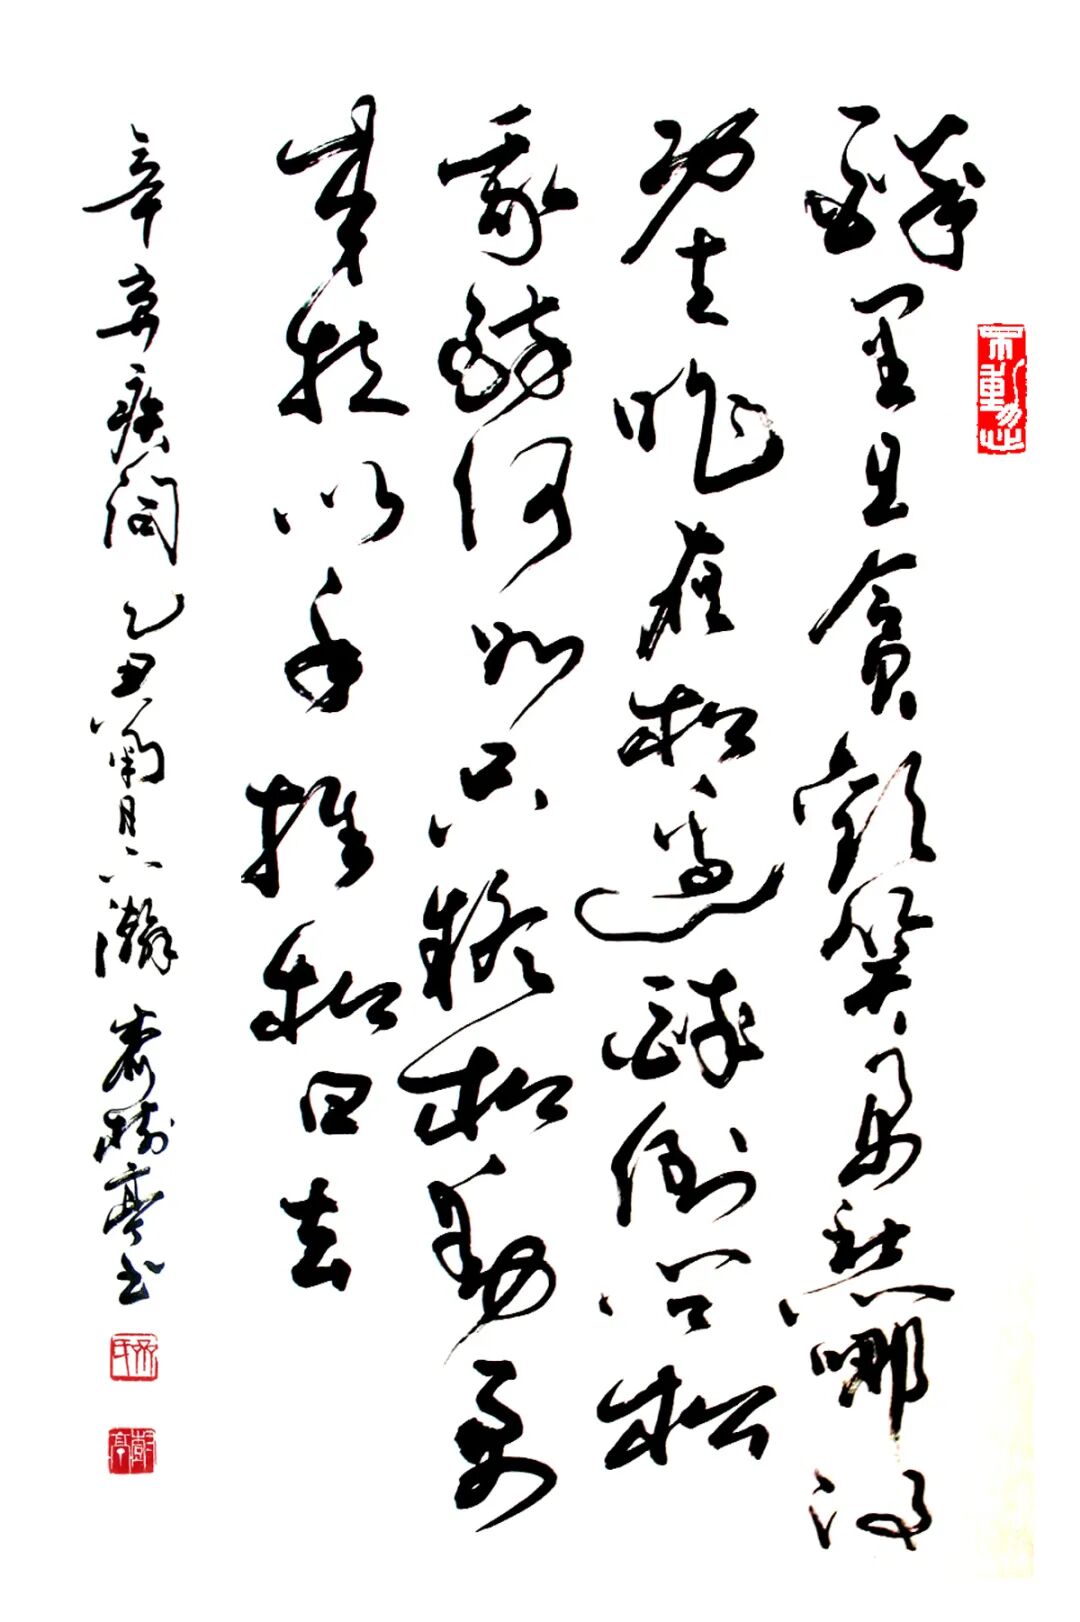 醉里且貪歡笑要愁哪得
功夫昨夜松邊醉倒问松
我醉何如只疑松動要
來扶以手推松曰去
辛弃疾词 乙丑菊月下瀚 樹亭书